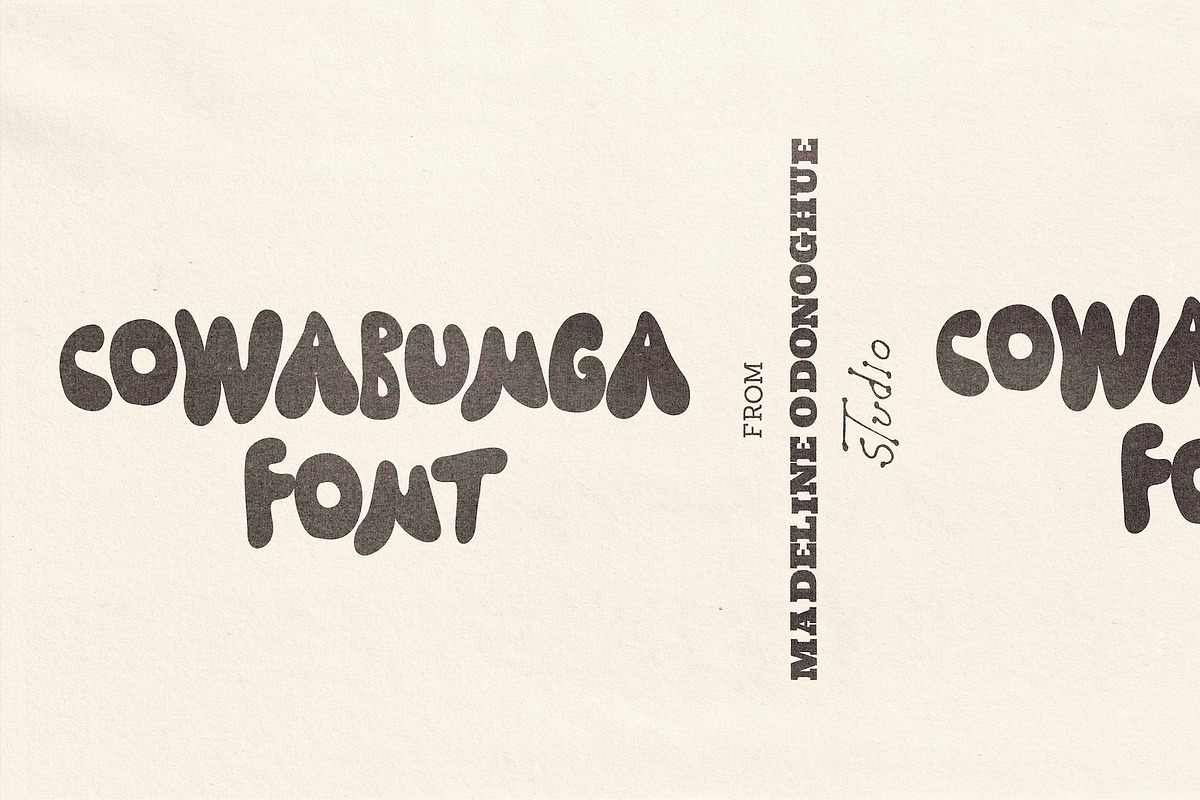 COWABUNGA
FONT
FROM
MADELINE ODONOGHUE
STudio
COWA
FO